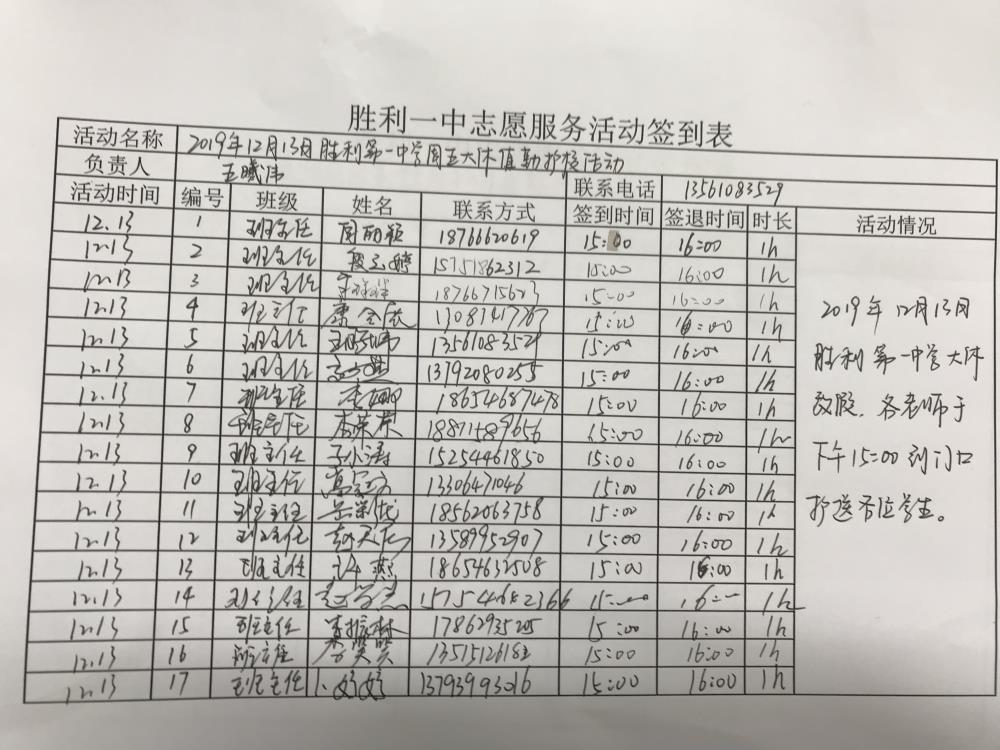 胜利一中志愿服务活动签到表
活动名称 2019年12月13日胜利第一中学周五大休值勤护校活动
负责人 王曦伟 联系电话 13561083529
活动时间 编号 班级 姓名 联系方式 签到时间 签退时间 时长 活动情况
12.13 1 班主任 周丽颖 18766620619 15:00 16:00 1h
12.13 2 班主任 15751862312 15:00 16:00 1h
12.13 3 班主任 18766715623 15:00 16:00 1h
12.13 4 班主任 13081417767 15:00 16:00 1h
12.13 5 班主任 王曦伟 13561083529 15:00 16:00 1h
12.13 6 班主任 13792080255 15:00 16:00 1h
12.13 7 班主任 18654687478 15:00 16:00 1h
12.13 8 班主任 18871589656 15:00 16:00 1h
12.13 9 班主任 15254461850 15:00 16:00 1h
12.13 10 班主任 13306471046 15:00 16:00 1h
12.13 11 班主任 18562063758 15:00 16:00 1h
12.13 12 班主任 13589952907 15:00 16:00 1h
12.13 13 班主任 18654632508 15:00 16:00 1h
12.13 14 班主任 15:00 16:00 1h
12.13 15 班主任 17862935205 15:00 16:00 1h
12.13 16 班主任 15:00 16:00 1h
12.13 17 班主任 13793993016 15:00 16:00 1h
2019年12月13日
胜利第一中学大休
放假，各老师于
下午15:00到门口
护送各位学生。